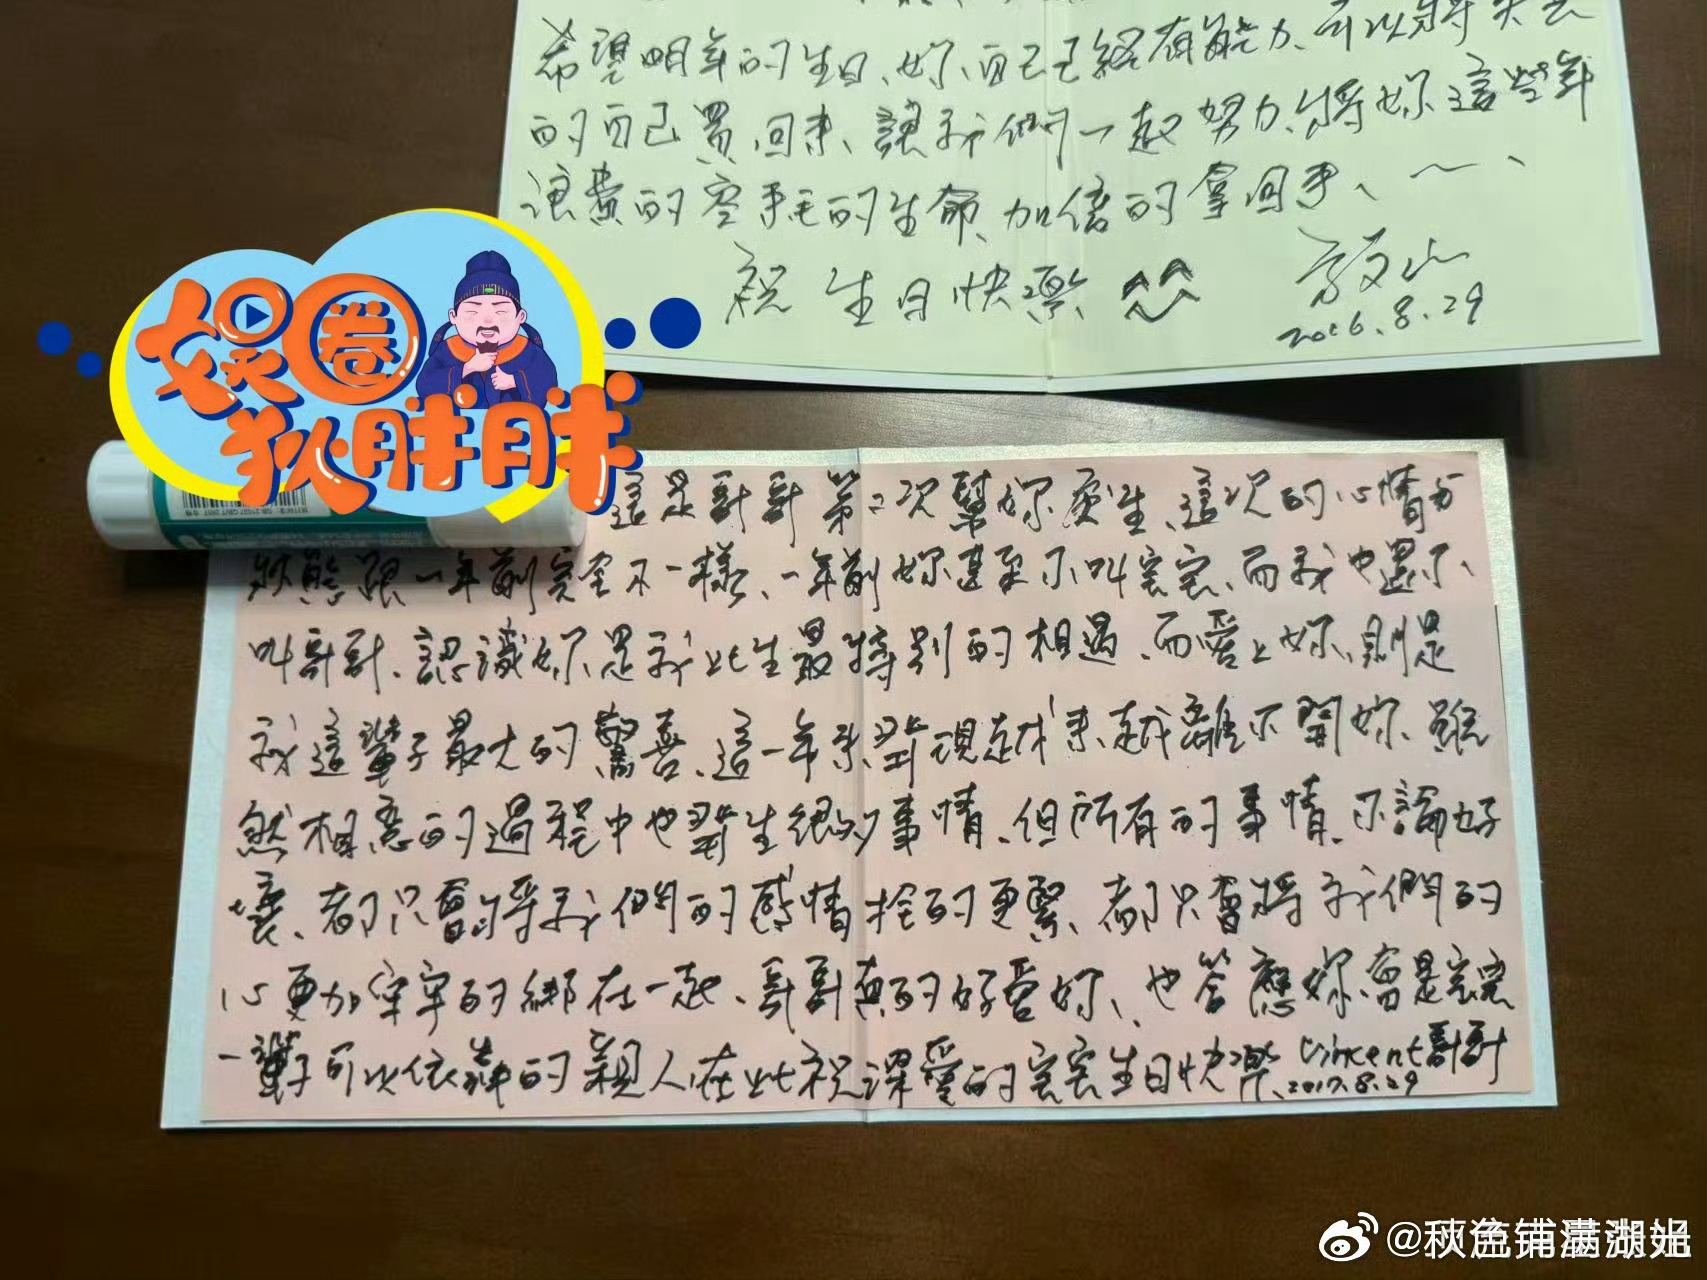 希望明年的生日、妳自己已經有能力、可以將失去
的自己買回來、讓我們一起努力、將妳這些年
浪費的空乏的生命、加倍的拿回來、~、
祝 生日快樂 ^^
2016.8.29
娱圈
狄胖胖
這是哥哥第二次幫妳慶生、這次的心情与
狀態跟一年前完全不一樣、一年前妳甚至不叫宝宝、而我也還不
叫哥哥、認識妳是我此生最特別的相遇、而愛上妳、則是
我這輩子最大的驚喜、這一年來發現越來越離不開妳、雖
然相戀的過程中也發生很多事情、但所有的事情、不論好
壞、都只會將我們的感情拴的更緊、都只會將我們的
心更加牢牢的綁在一起、哥哥真的好愛妳、也答應妳會是宝宝
一輩子可以依靠的親人、在此祝深愛的宝宝生日快樂、Vincent哥哥
2017.8.29